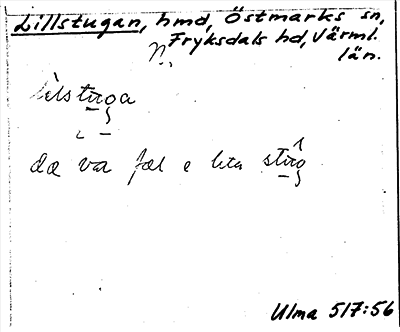 Lillstugan, hmd, Östmarks sn,
N., Fryksdals hd, Värml.
län.
lilstuga
dæ va fæl e lita stug
Ulma 517:56